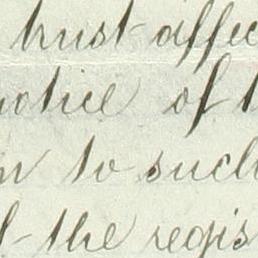 trust affec
notice of t
n to such
f the regis